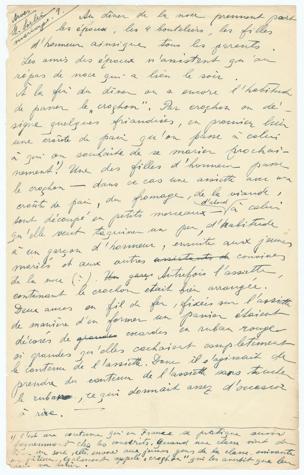 Au dîner de la noce prennent part
les époux, les 4 hôteliers, les filles
d'honneur ainsi que tous les parents.
Les amis des époux n'assistent qu'au
repas de noce qui a lieu le soir.
A la fin du dîner on a encore l'habitude
de passer le „croghon". Par croghon on dé-
signe quelques friandises, en premier lieu
une croûte de pain, qu'on passe à celui
à qui on souhaite de se marier prochai-
nement. Une des filles d'honneur passe
le croghon — dans ce cas une assiette avec un
croûte de pain, du fromage, de la viande,
tout découpé en petits morceaux — d'abord à celui
qu'elle veut taquiner un peu, d'habitude
à un garçon d'honneur, ensuite aux jeunes
mariés et aux autres convives
de la noce Autrefois l'assiette,
contenant le crochon était bien arrangée.
Deux arcs en fil de fer, fixés sur l'assiette
de manière d'en former un panier étaient
décorés de cocardes en ruban rouge
si grandes qu'elles cachaient complètement
le contenu de l'assiette. Donc il s'agissait de
prendre du contenu de l'assiette sans
le ruban, ce qui donnait assez d'occasion
à rire.
1) C'est une coutume qui en France se pratique aussi
chez les conscrits. Quand une classe vient de